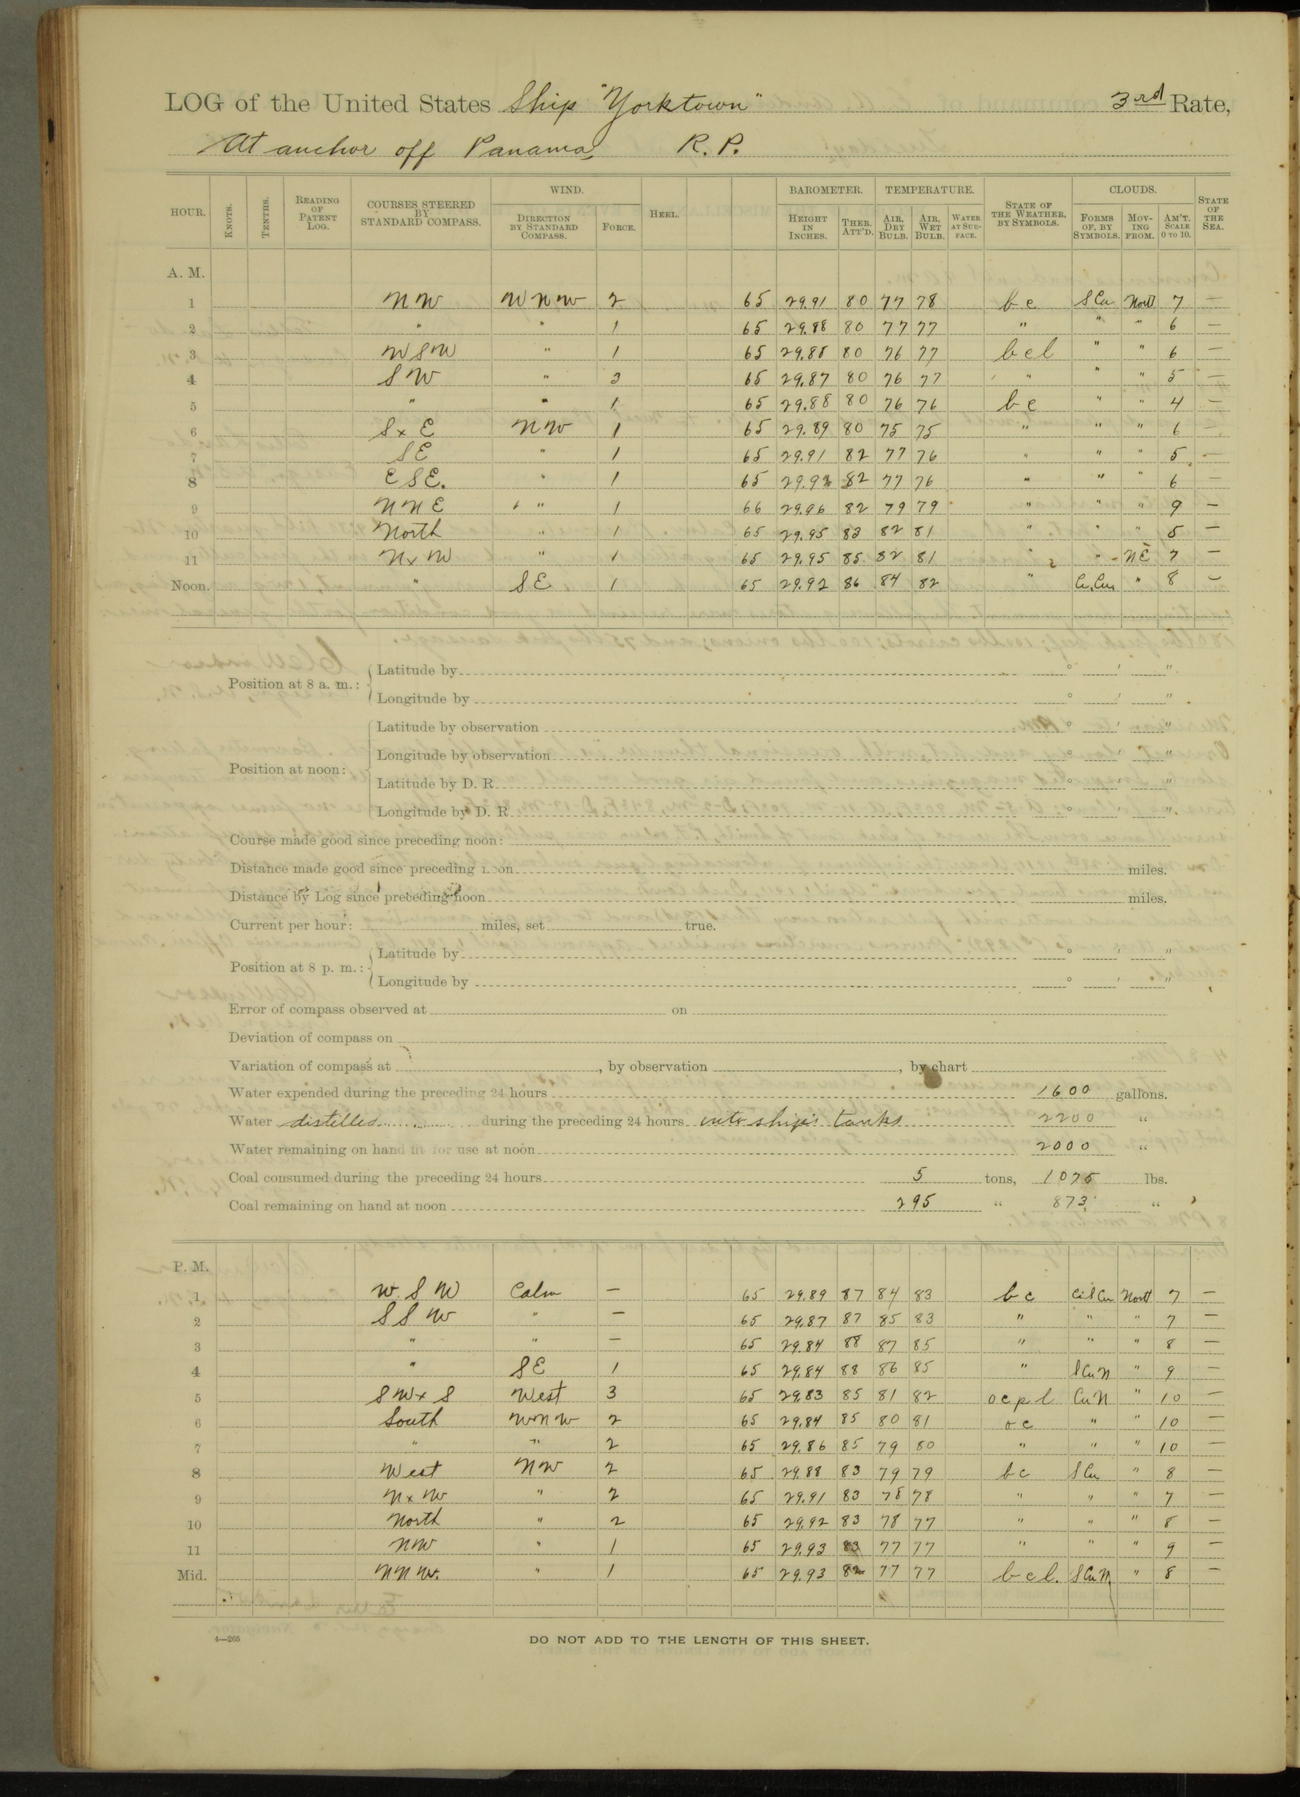 LOG of the United States Ship "Yorktown" 3rd Rate,
At anchor off Panama, R. P.
HOUR. KNOTS. TENTHS. READING OF PATENT LOG. COURSES STEERED BY STANDARD COMPASS. WIND. DIRECTION BY STANDARD COMPASS. FORCE. HEEL. BAROMETER. HEIGHT IN INCHES. THER. ATT'D. TEMPERATURE. AIR, DRY BULB. AIR, WET BULB. WATER AT SURFACE. STATE OF THE WEATHER, BY SYMBOLS. CLOUDS. FORMS OF, BY SYMBOLS. MOVING FROM. AM'T. SCALE 0 TO 10. STATE OF THE SEA.
A. M.
1 NW WNW 2 65 29.91 80 77 78 b c S Cu North 7 —
2 " " 1 65 29.88 80 77 77 " " " 6 —
3 WSW " 1 65 29.88 80 76 77 b c l " " 6 —
4 SW " 3 65 29.87 80 76 77 " " " 5 —
5 " " 1 65 29.88 80 76 76 b c " " 4 —
6 S x E NW 1 65 29.89 80 75 75 " " " 6 —
7 SE " 1 65 29.91 82 77 76 " " " 5 —
8 ESE. " 1 65 29.93 82 77 76 " " " 6 —
9 NNE " 1 66 29.96 82 79 79 " " " 9 —
10 North " 1 65 29.95 83 82 81 " " " 5 —
11 N x W " 1 65 29.95 85 82 81 " " NE 7 —
Noon. " SE 1 65 29.92 86 84 82 " Cu " 8 —
Position at 8 a. m.: Latitude by ° ' "
Longitude by ° ' "
Position at noon: Latitude by observation ° ' "
Longitude by observation ° ' "
Latitude by D. R. ° ' "
Longitude by D. R. ° ' "
Course made good since preceding noon:
Distance made good since preceding noon miles.
Distance by Log since preceding noon miles.
Current per hour: miles, set true.
Position at 8 p. m.: Latitude by ° ' "
Longitude by ° ' "
Error of compass observed at on
Deviation of compass on
Variation of compass at , by observation , by chart
Water expended during the preceding 24 hours 1600 gallons.
Water distilled during the preceding 24 hours into ship's tanks 2200 "
Water remaining on hand fit for use at noon 2000 "
Coal consumed during the preceding 24 hours 5 tons, 1075 lbs.
Coal remaining on hand at noon 295 " 873 "
P. M.
1 W.S W Calm — 65 29.89 87 84 83 b c Ci S Cu North 7 —
2 SSW " — 65 29.87 87 85 83 " " " 7 —
3 " " — 65 29.84 88 87 85 " " " 8 —
4 " SE 1 65 29.84 88 86 85 " S Cu N " 9 —
5 SW x S West 3 65 29.83 85 81 82 o c p l Cu N " 10 —
6 South WNW 2 65 29.84 85 80 81 o c " " 10 —
7 " " 2 65 29.86 85 79 80 " " " 10 —
8 West NW 2 65 29.88 83 79 79 b c S Cu " 8 —
9 N x W " 2 65 29.91 83 78 78 " " " 7 —
10 North " 2 65 29.92 83 78 77 " " " 8 —
11 NW " 1 65 29.93 83 77 77 " " " 9 —
Mid. NNW. " 1 65 29.93 82 77 77 b c l. S Cu N " 8 —
4—265
DO NOT ADD TO THE LENGTH OF THIS SHEET.